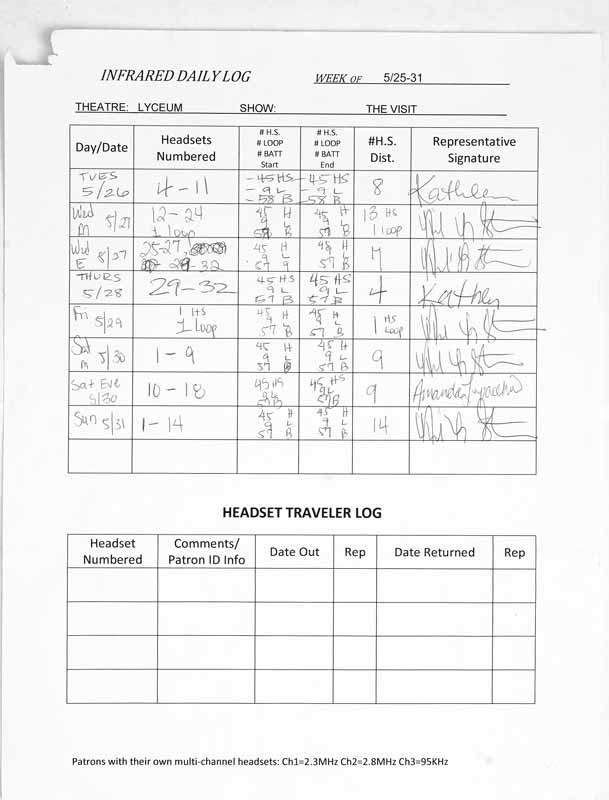 INFRARED DAILY LOG WEEK OF 5/25-31
THEATRE: LYCEUM SHOW: THE VISIT
Day/Date Headsets Numbered # H.S. # LOOP # BATT Start # H.S. # LOOP # BATT End #H.S. Dist. Representative Signature
TUES 5/26 4-11 -45 HS -9 L -58 B -45 HS -9 L -58 B 8 Kathleen
Wed M 5/27 12-24 1 loop 45 H 9 L 58 B 45 H 9 L 58 B 13 HS 1 loop
Wed E 5/27 25-27, 29-32 45 H 9 L 57 45 H 9 L 57 B 7
THURS 5/28 29-32 45 HS 9L 57 B 45 HS 9L 57 B 4 Kathleen
Fri 5/29 1 HS 1 Loop 45 H 9 L 57 B 45 H 9 L 57 B 1 HS Loop
Sat M 5/30 1-9 45 H 9 L 57 B 45 H 9 L 57 B 9
Sat Eve 5/30 10-18 45 HS 9L 57B 45 HS 9L 57B 9 Amanda
Sun 5/31 1-14 45 H 9 L 57 B 45 H 9 L 57 B 14
HEADSET TRAVELER LOG
Headset Numbered Comments/ Patron ID Info Date Out Rep Date Returned Rep
Patrons with their own multi-channel headsets: Ch1=2.3MHz Ch2=2.8MHz Ch3=95KHz